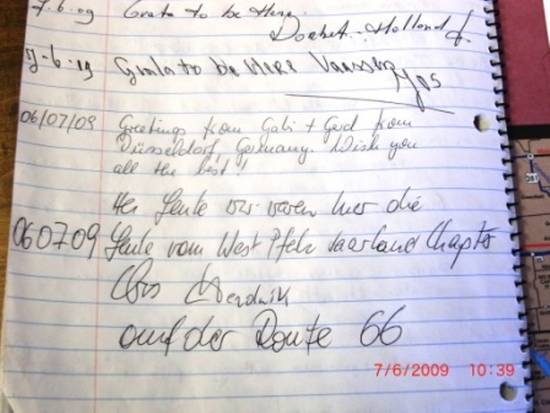 7.6.09 Grata to be Here.
Docket. Holland
Grata to be Here Vanssen
Jos
06/07/09 Greetings from Gabi + Gerd from
Düsseldorf, Germany. Wish you
all the best!
Leute wir waren hier die
060709 Leute vom West Pfalz Saarland Chapter
auf der Route 66
7/6/2009 10:39